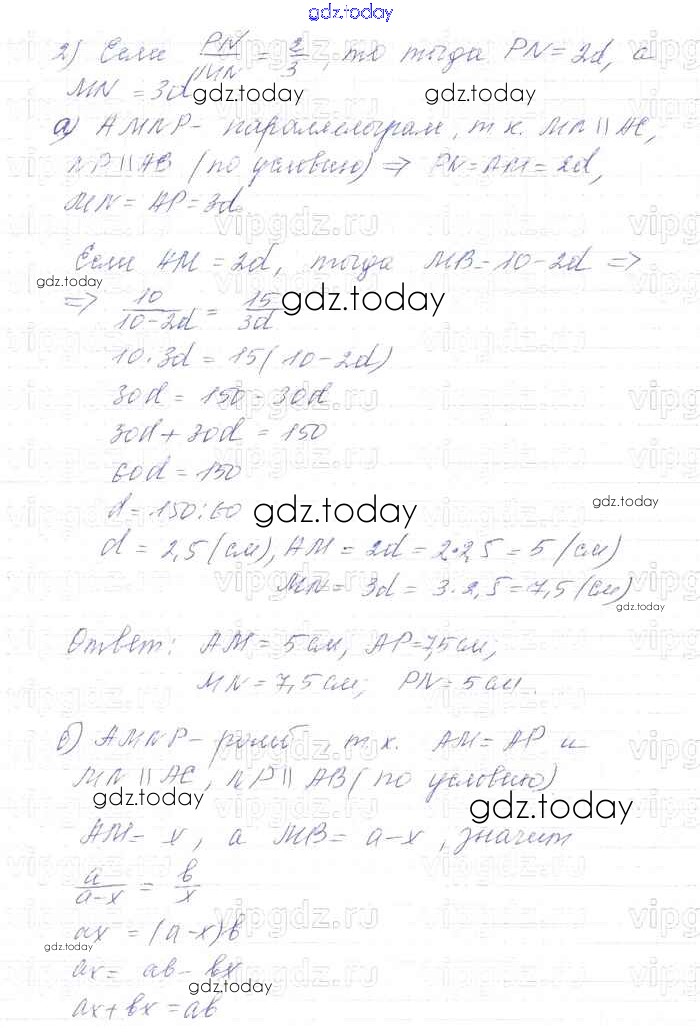 gdz.today
2) Если PN/MN = 2/3, то тогда PN = 2d, а
MN = 3d
gdz.today gdz.today
а) AMNP - параллелограм, т.к. MN || AC,
NP || AB (по условию) => PN = AM = 2d,
MN = AP = 3d.
Если AM = 2d, тогда MB = 10 - 2d =>
gdz.today
=> 10/(10-2d) = 15/3d
gdz.today
10·3d = 15(10-2d)
30d = 150 - 30d
30d + 30d = 150
60d = 150
d = 150:60
gdz.today gdz.today
d = 2,5 (см), AM = 2d = 2·2,5 = 5 (см)
MN = 3d = 3·2,5 = 7,5 (см)
gdz.today
Ответ: AM = 5 см, AP = 7,5 см;
MN = 7,5 см; PN = 5 см.
б) AMNP - ромб, т.к. AM = AP и
MN || AC, NP || AB (по условию)
gdz.today gdz.today
AM = x, а MB = a-x, значит
a/(a-x) = b/x
ax = (a-x)b
gdz.today
ax = ab - bx
gdz.today
ax + bx = ab
vipgdz.ru